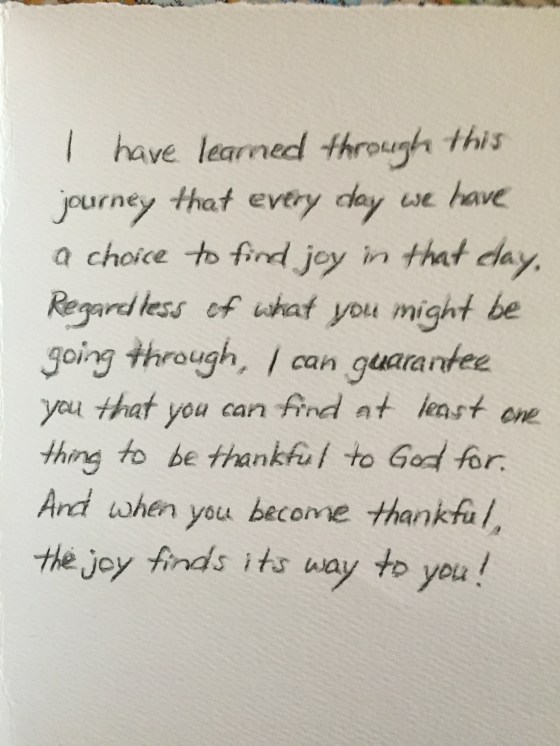 I have learned through this
journey that every day we have
a choice to find joy in that day.
Regardless of what you might be
going through, I can guarantee
you that you can find at least one
thing to be thankful to God for.
And when you become thankful,
the joy finds its way to you!